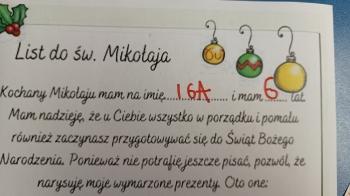 List do św. Mikołaja
Kochany Mikołaju mam na imię IGA i mam 6 lat.
Mam nadzieję, że u Ciebie wszystko w porządku i pomału
również zaczynasz przygotowywać się do Świąt Bożego
Narodzenia. Ponieważ nie potrafię jeszcze pisać, pozwól, że
narysuję moje wymarzone prezenty. Oto one: